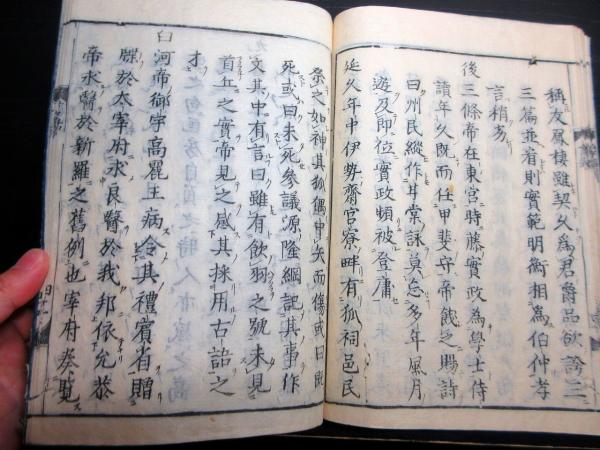 稱友鳳棲雖契久為君爵品欲誇三
三篇並看則實範明衡相為伯仲孝
言稍劣
後三條帝在東宮時藤實政為學士侍
讀年久既而任甲斐守帝餞之賜詩
曰州民縱作甘棠詠莫忘多年風月
遊及即位實政頻被登庸
延久年中伊勢齋宮寮畔有狐祠邑民
祭之如神其狐偶中矢而傷或曰既
死或曰未死參議源隆綱記其事作
文其中有言曰雖有飲羽之號未見
首丘之實帝見之感其採用古語之
才
白河帝御宇高麗王病令其禮賓省贈
牒於太宰府求良醫於我邦依允恭
帝求醫於新羅之舊例也宰府奏覧